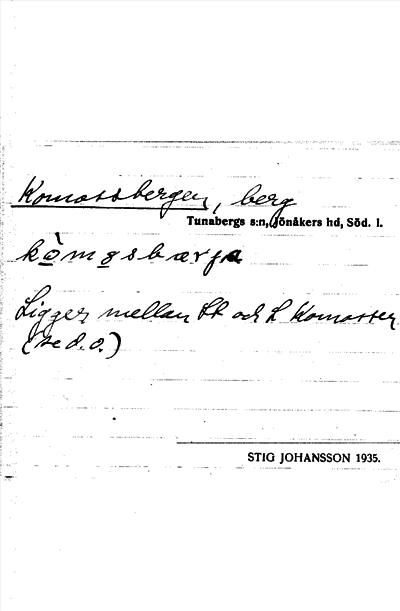 Komossbergen, berg
Tunabergs s:n, Jönåkers hd, Söd. l.
kò̱mo̱sbærja
Ligger mellan St och L Komossen
(se d. o.)
STIG JOHANSSON 1935.